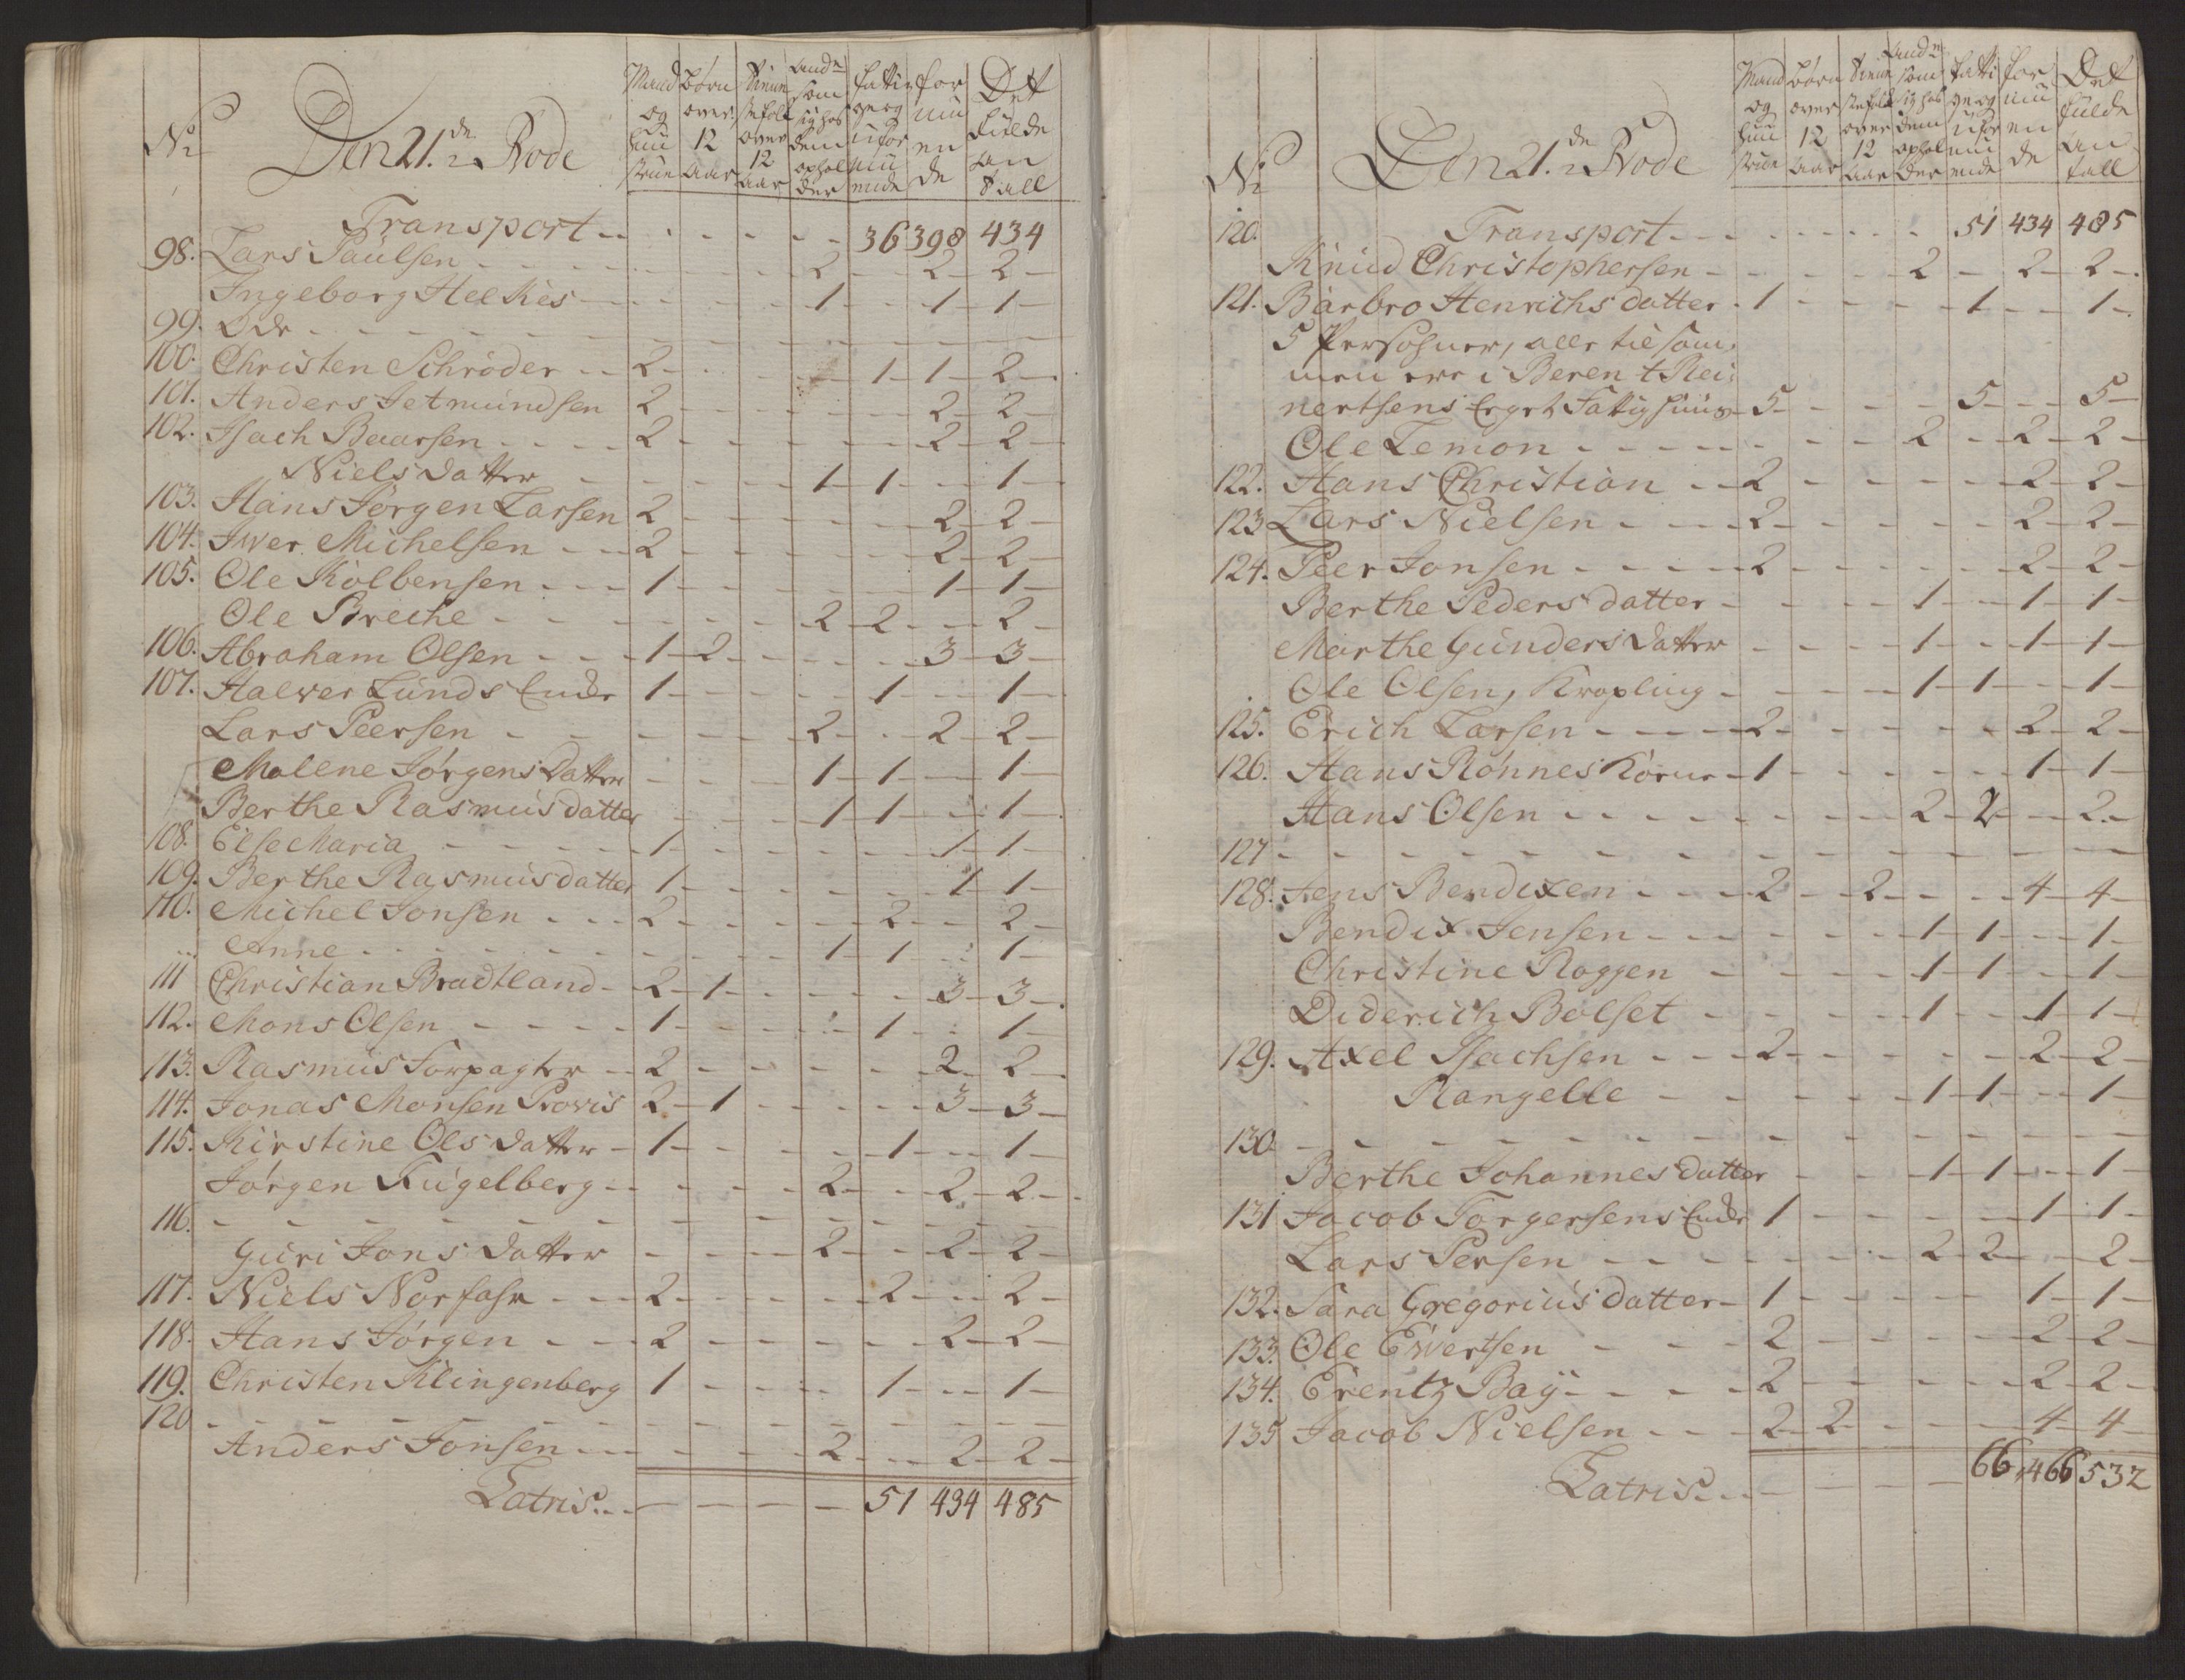 No Den 21.de Rode
Mand og Huustrue | Børn over 12 Aar | Tieneste folk over 12 Aar | Andre som sig hos dem opholder | fattige og uformuende | formuende | Det fulde Antall
Transport - - - - - 36 398 434
98. Lars Paulsen - - - - 2 - - 2 - 2 -
Ingeborg Helkes - - - - 1 - - 1 - 1 -
99. Øde - - - - - - -
100. Christen Schrøder - - 2 - - - - 1 - 1 - 2 -
101. Anders Jetmundsen 2 - - - - - 2 - 2 -
102. Isach Baarsen - - - - 2 - - - - - 2 - 2 -
Niels datter - - - - 1 - 1 - - 1 -
103. Hans Jørgen Larsen 2 - - - - - 2 - 2 -
104. Iwer Michelsen - - 2 - - - - - 2 - 2 -
105. Ole Kolbensen - - - 1 - - - - - 1 - 1 -
Ole Breche - - - - - 2 - 2 - - 2 -
106. Abraham Olsen - - - 1 - 2 - - - - 3 - 3 -
107. Halver Lunds Enche 1 - - - - 1 - - 1 -
Lars Peersen - - - - 2 - - 2 - 2 -
Malene Jørgens Datter - - - 1 - 1 - - 1 -
Berthe Rasmus datter - - - 1 - 1 - - 1 -
108. Else Maria - - - - 1 - - - - - 1 - 1 -
109. Berthe Rasmusdatter 1 - - - - - 1 1 -
110. Michel Jonsen - - - 2 - - - - 2 - - 2 -
Anne - - - - - - 1 - 1 - - 1 -
111 Christian Bradtland - 2 - 1 - - - - 3 - 3 -
112. Mons Olsen - - - - 1 - - - - 1 - - 1 -
113. Rasmus Forpagter - - 2 - - - - - 2 - 2 -
114. Jonas Monsen Provis 2 - 1 - - - - 3 - 3 -
115. Kirstine Ols datter - 1 - - - - 1 - - 1 -
Jørgen Kugelberg - - - - 2 - - 2 - 2 -
116. - - - - - - - - - - -
Guri Jons datter - - - 2 - - 2 - 2 -
117. Niels Norfahr - - - 2 - - - - 2 - - 2 -
118. Hans Jørgen - - - 2 - - - - - 2 - 2 -
119. Christen Klingenberg 1 - - - - 1 - - 1 -
120 - - - - - - - - - - -
Anders Jonsen - - - - - 2 - - 2 - 2 -
Latris - - - - - - 51 434 485
No Den 21.de Rode
Mand og Huustrue | Børn over 12 Aar | Tieneste folk over 12 Aar | Andre som sig hos dem opholder | fattige og uformuende | formuende | Det fulde Antall
120. Transport - - - - - - 51 434 485
Knud Christophersen - - - - 2 - 2 - 2 -
121. Barbro Henrichs datter - 1 - - - - 1 - - 1 -
5 Persohner, alle tilsam,
men ere i Beren t Rei,
nertsens Eget Fattighuus - 5 - - - - 5 - - 5 -
Ole Lemon - - - - - - 2 - 2 - 2 -
122. Hans Christian - - 2 - - - - - 2 - 2 -
123 Lars Nielsen - - - - 2 - - - - - 2 - 2 -
124. Peer Jonsen - - - - - 2 - - - - - 2 - 2 -
Berthe Peders datter - - - - 1 - - 1 - 1 -
Marthe Gunders datter - - - - 1 - - 1 - 1 -
Ole Olsen, Krøpling - - - - 1 - 1 - - 1 -
125. Erich Larsen - - - - 2 - - - - - 2 - 2 -
126. Hans Rønnes Kone - 1 - - - - - 1 - 1 -
Hans Olsen - - - - - - - 2 - 2 - - 2 -
127 - - - - - - - - - - -
128. Jens Bendixen - - - 2 - - 2 - - - 4 - 4 -
Bendix Jensen - - - - - - 1 - 1 - - 1 -
Christine Roggen - - - - 1 - 1 - - 1 -
Diderich Bolset - - - - 1 - - 1 1 -
129. Axel Isachsen - - - 2 - - - - - 2 - 2 -
Rangelle - - - - - 1 - 1 - - 1 -
130 - - - - - - - - - - -
Berthe Johannes datter - - - 1 - 1 - - 1 -
131 Jacob Torgersens Enche 1 - - - - - 1 - 1 -
Lars Persen - - - - - - 2 - 2 - - 2 -
132. Sara Gregorius datter - 1 - - - - - 1 - 1 -
133. Ole Ewertsen - - - 2 - - - - - 2 - 2 -
134. Erentz Baÿ - - - - 2 - - - - - 2 - 2 -
135 Jacob Nielsen - - - 2 - 2 - - - - 4 - 4 -
Latris - - - - - - 66 466 532